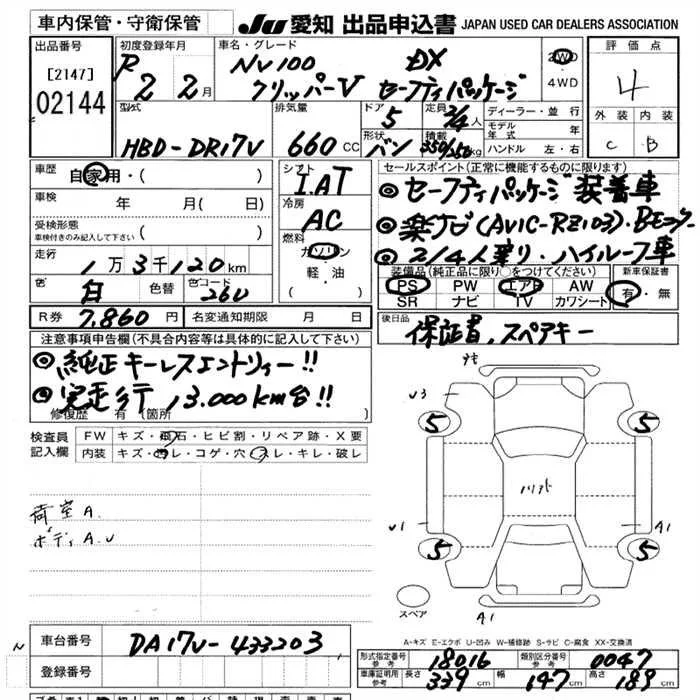 車内保管・守衛保管 JU 愛知 出品申込書 JAPAN USED CAR DEALERS ASSOCIATION
出品番号 [2147] 02144
初度登録年月 R 2 2月
車名・グレード NV100 DX
クリッパーV セーフティパッケージ
2WD ・ 4WD
評価点 4
外装 C 内装 B
型式 HBD-DR17V
排気量 660 CC
ドア 5 定員 2/4人
形状 バン 積載 350/250kg
ディーラー・並行
モデル年式 年
ハンドル 左・右
車歴 自家用・( )
車検 年 月( 日)
受検形態 車検付きのみ記入して下さい
走行 1万3千120km
色 白 色替 色コード 26U
R券 7,860円 名変通知期限 月 日
シフト I.AT
冷房 AC
燃料 ガソリン ・ 軽・油
セールスポイント(正常に機能するものに限ります)
◎セーフティパッケージ装着車
◎楽ナビ(AVIC-RZ103)・Bモニター
◎2/4人乗り・ハイルーフ車
装備品(純正品に限り○をつけてください) 新車保証書
PS PW エアB AW 有・無
SR ナビ TV カワシート
後日品 保証書,スペアキー
注意事項申告欄(不具合内容等は具体的に記入して下さい)
◎純正キーレスエントリィー!!
◎実走行 13.000km台!!
修復歴 有(箇所
検査員記入欄 FW キズ・飛石・ヒビ割・リペア跡・X要
内装 キズ・汚レ・コゲ・穴・スレ・キレ・破レ
荷室A.
ボディA.U
U3
5 5
U1 A1
5 5
スペア A1
A-キズ E-エクボ U-凹み W-補修跡 S-サビ C-腐食 XX-交換済
車台番号 DR17V-433203
登録番号
形式指定番号 参考 18016 類別区分番号 参考 0047
車庫証明用 参考 長さ 339cm 幅 147cm 高さ 189cm